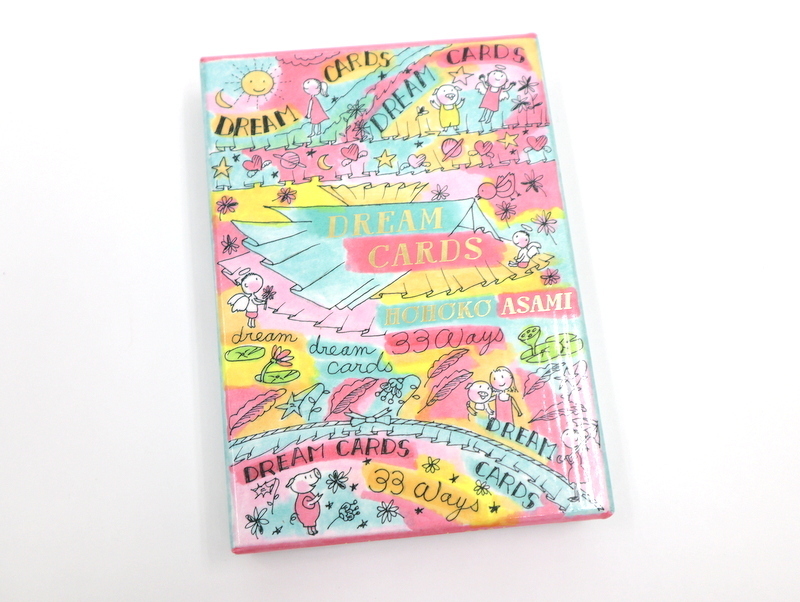 DREAM CARDS
DREAM CARDS
DREAM
CARDS
HOHOKO ASAMI
dream
dream
cards
33 Ways
DREAM CARDS
DREAM CARDS
33 Ways